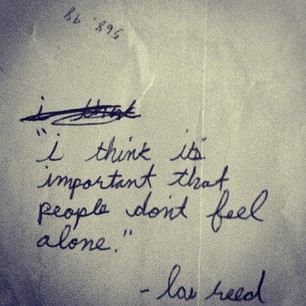 i think
"i think its
important that
people don't feel
alone."
- lou reed